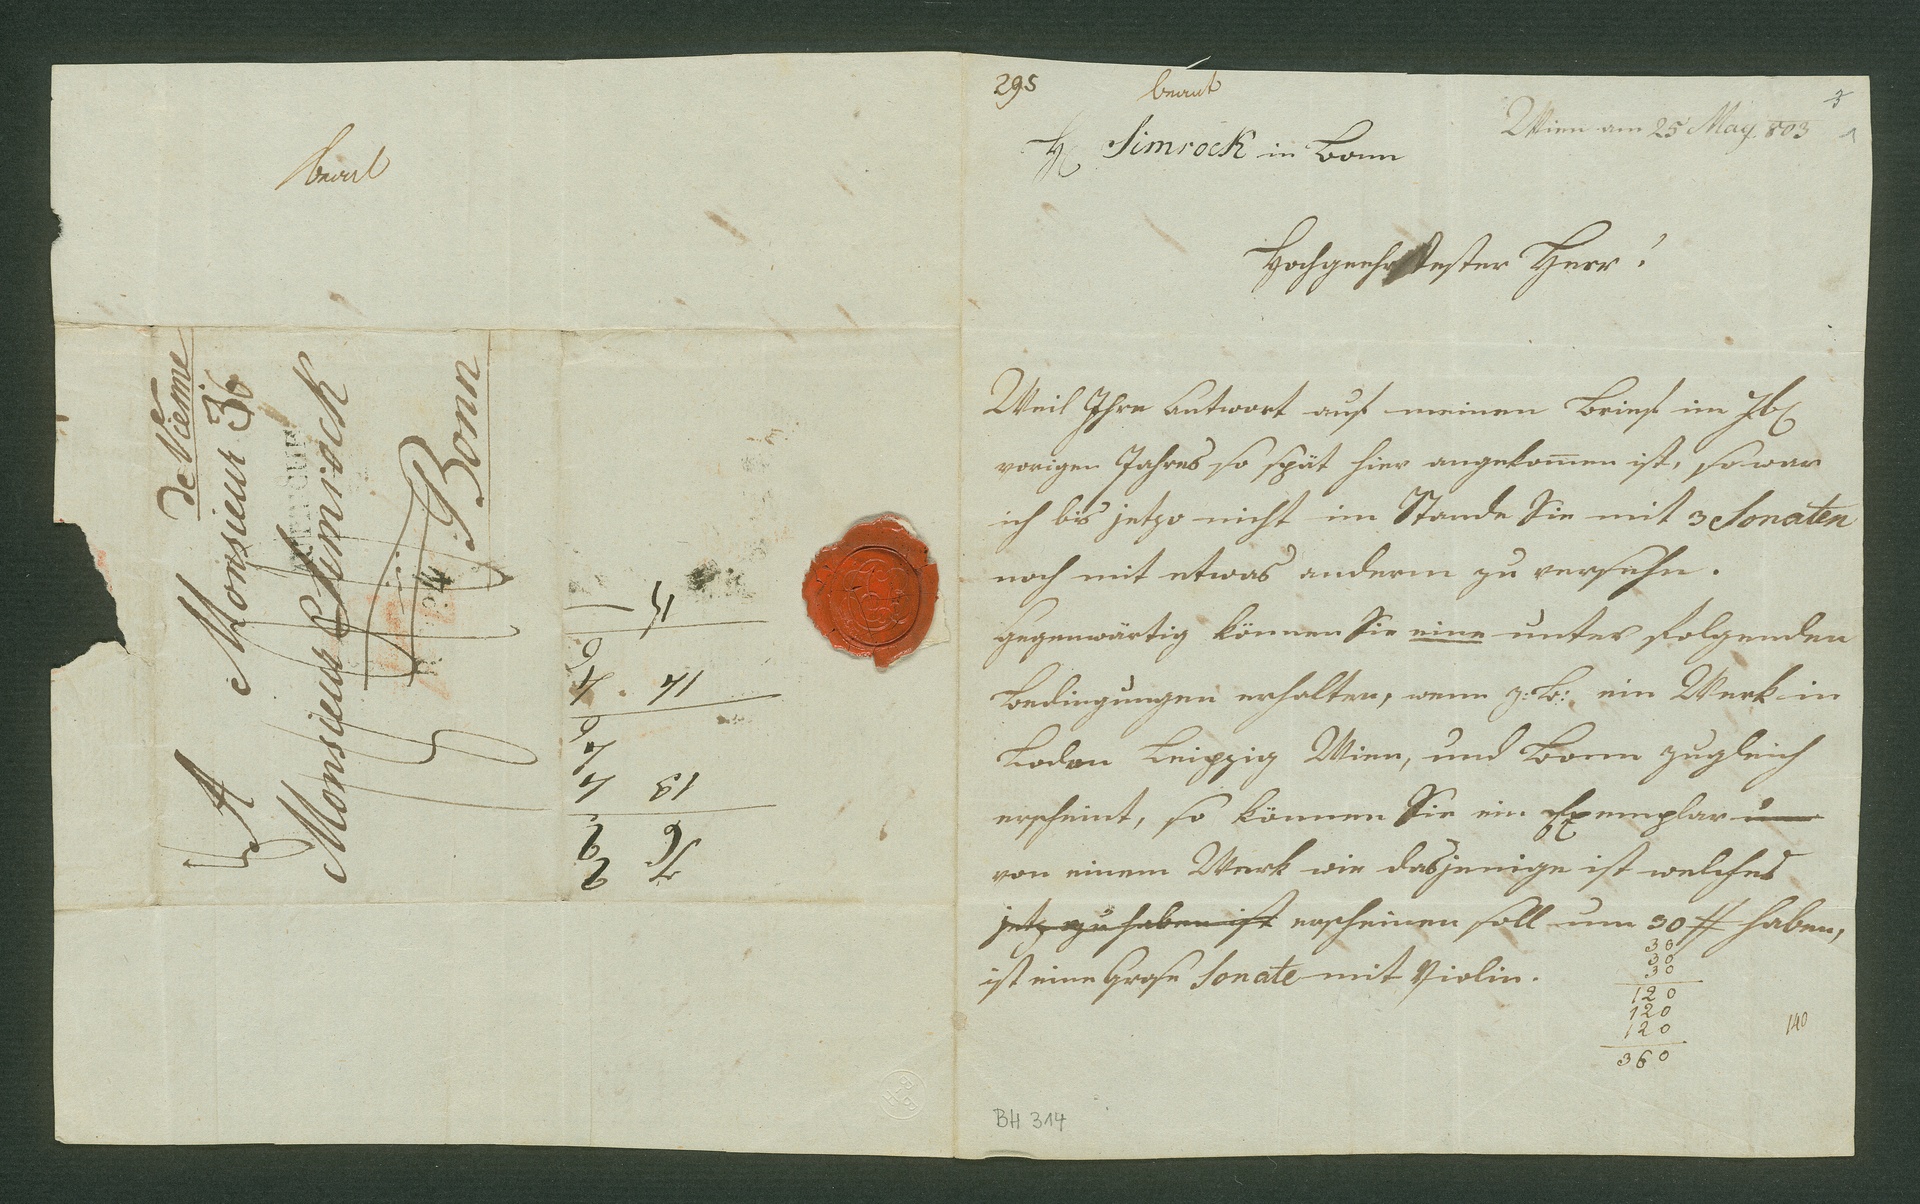 beant
de Vienne
Monsieur 36
A
Monsieur Simrock
Bonn
R. No. 4
15
14 4 6
13 4 4 6
76 2 9
295
beant
3
Wien am 25 May 803
H. Simrock in Bonn
Hochgeehrtester Herr!
Weil Ihre Antwort auf meinen Brief im 7b
vorigen Jahres so spät hier angekom̅en ist, so war
ich bis jetzo nicht im Stande Sie mit 3 Sonaten
noch mit etwas anderm zu versehn.
gegenwärtig können Sie eine unter folgenden
Bedingungen erhalten, wenn z: B: ein Werk in
Lodon Leipzig Wien, und Bonn zugleich
erscheint, so können Sie ein Exemplar
von einem Werk wie dasjenige ist welches
jetz zu haben ist erscheinen soll um 30 # haben,
ist eine Große Sonate mit Violin.
30
30
30
120
120
120
360
140
BH 314